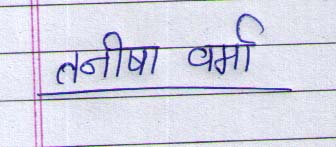 तनीषा वर्मा